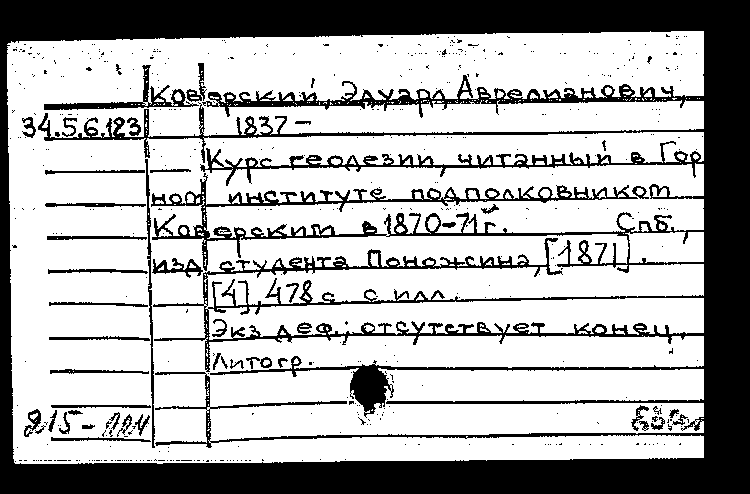 Коверский, Эдуард Аврелианович,
34.5.6.123 1837 –
Курс геодезии, читанный в Гор
ном институте подполковником
Коверским в 1870-71 г. Спб.,
изд. студента Поножсина, [1871].
[4], 478 с. с илл.
Экз. деф.; отсутствует конец.
Литогр.
215-